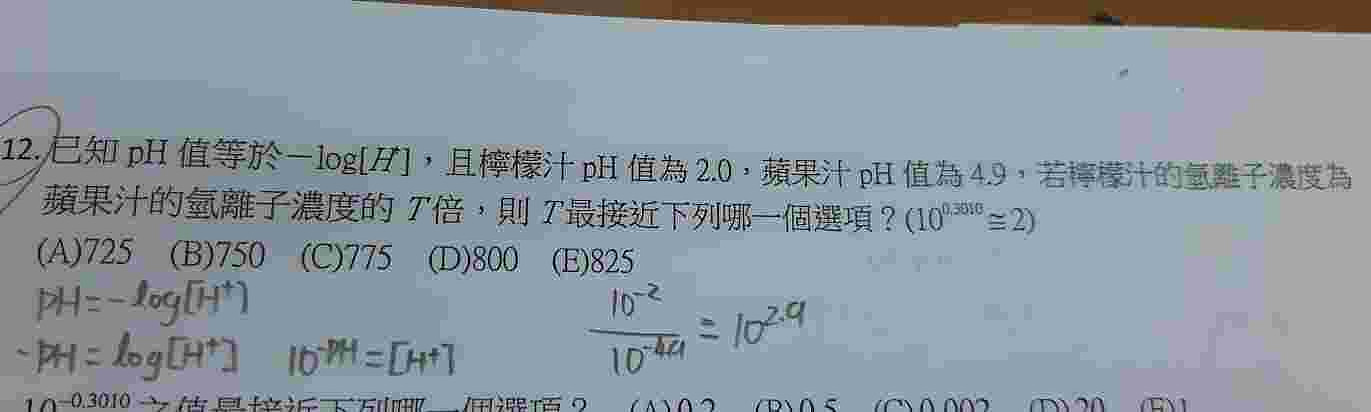 12.已知 pH 值等於－log[H⁺]，且檸檬汁 pH 值為 2.0，蘋果汁 pH 值為 4.9，若檸檬汁的氫離子濃度為
蘋果汁的氫離子濃度的 T倍，則 T最接近下列哪一個選項？(10^0.3010≅2)
(A)725 (B)750 (C)775 (D)800 (E)825
pH=-log[H⁺]
-pH=log[H⁺] 10^-pH=[H⁺]
10^-2/10^-4.9=10^2.9
10^-0.3010 之值最接近下列哪一個選項？ (A)0.2 (B)0.5 (C)0.002 (D)20 (E)1